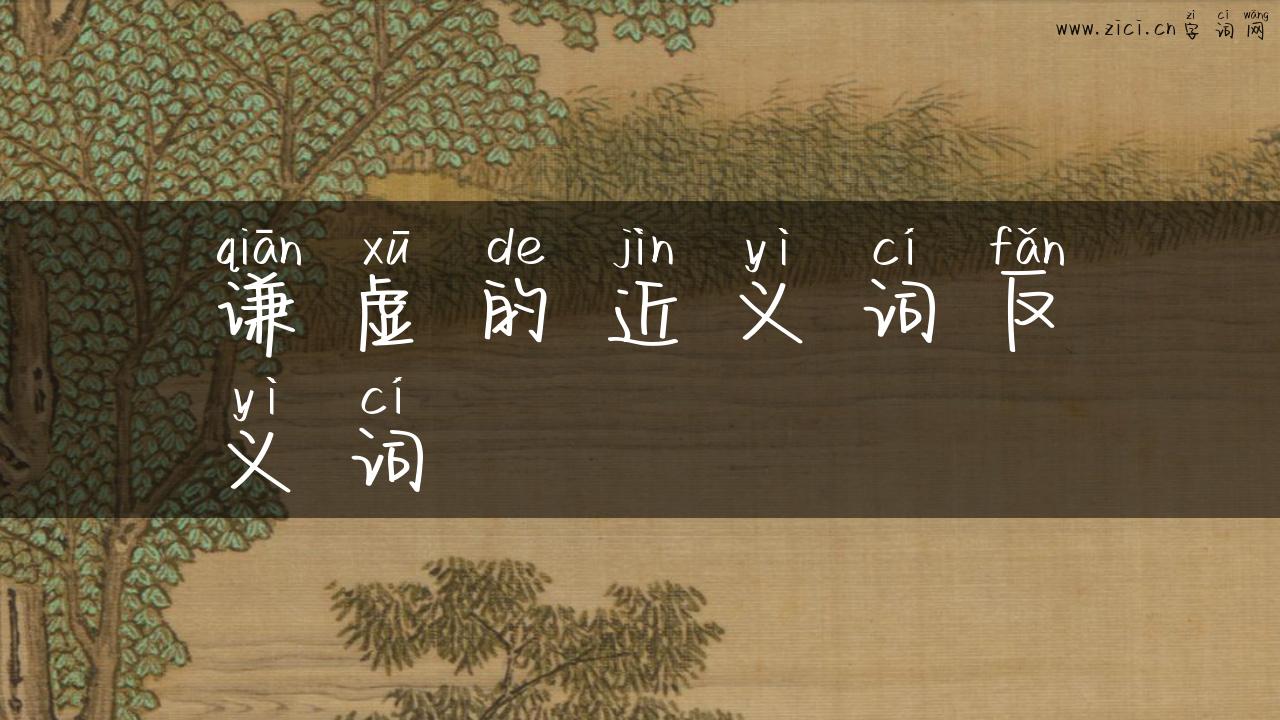 zì cí wǎng
www.zici.cn字词网
qiān xū de jìn yì cí fǎn
谦虚的近义词反
yì cí
义词